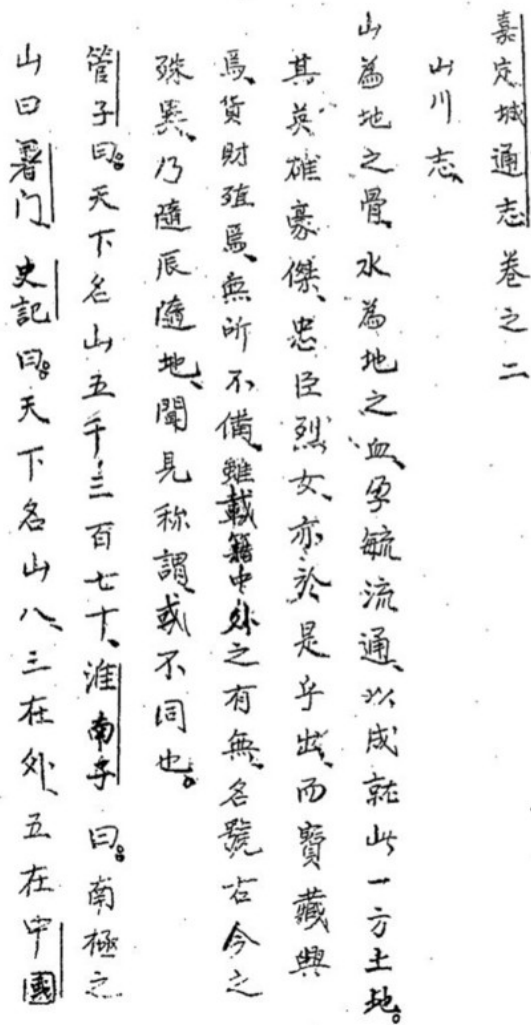 嘉定城通志卷之二
山川志、
山為地之骨、水為地之血、孕毓流通、以成就此一方土地。
其英雄豪傑、忠臣烈女、亦於是乎出、而寶藏興
焉、貨財殖焉、無所不備、雖載籍中外之有無、名號古今之
殊異、乃隨辰隨地、聞見称謂、或不同也。
管子曰。天下名山五千三百七十、淮南子曰。南極之
山曰暑门、史記曰。天下名山八、三在外、五在中國